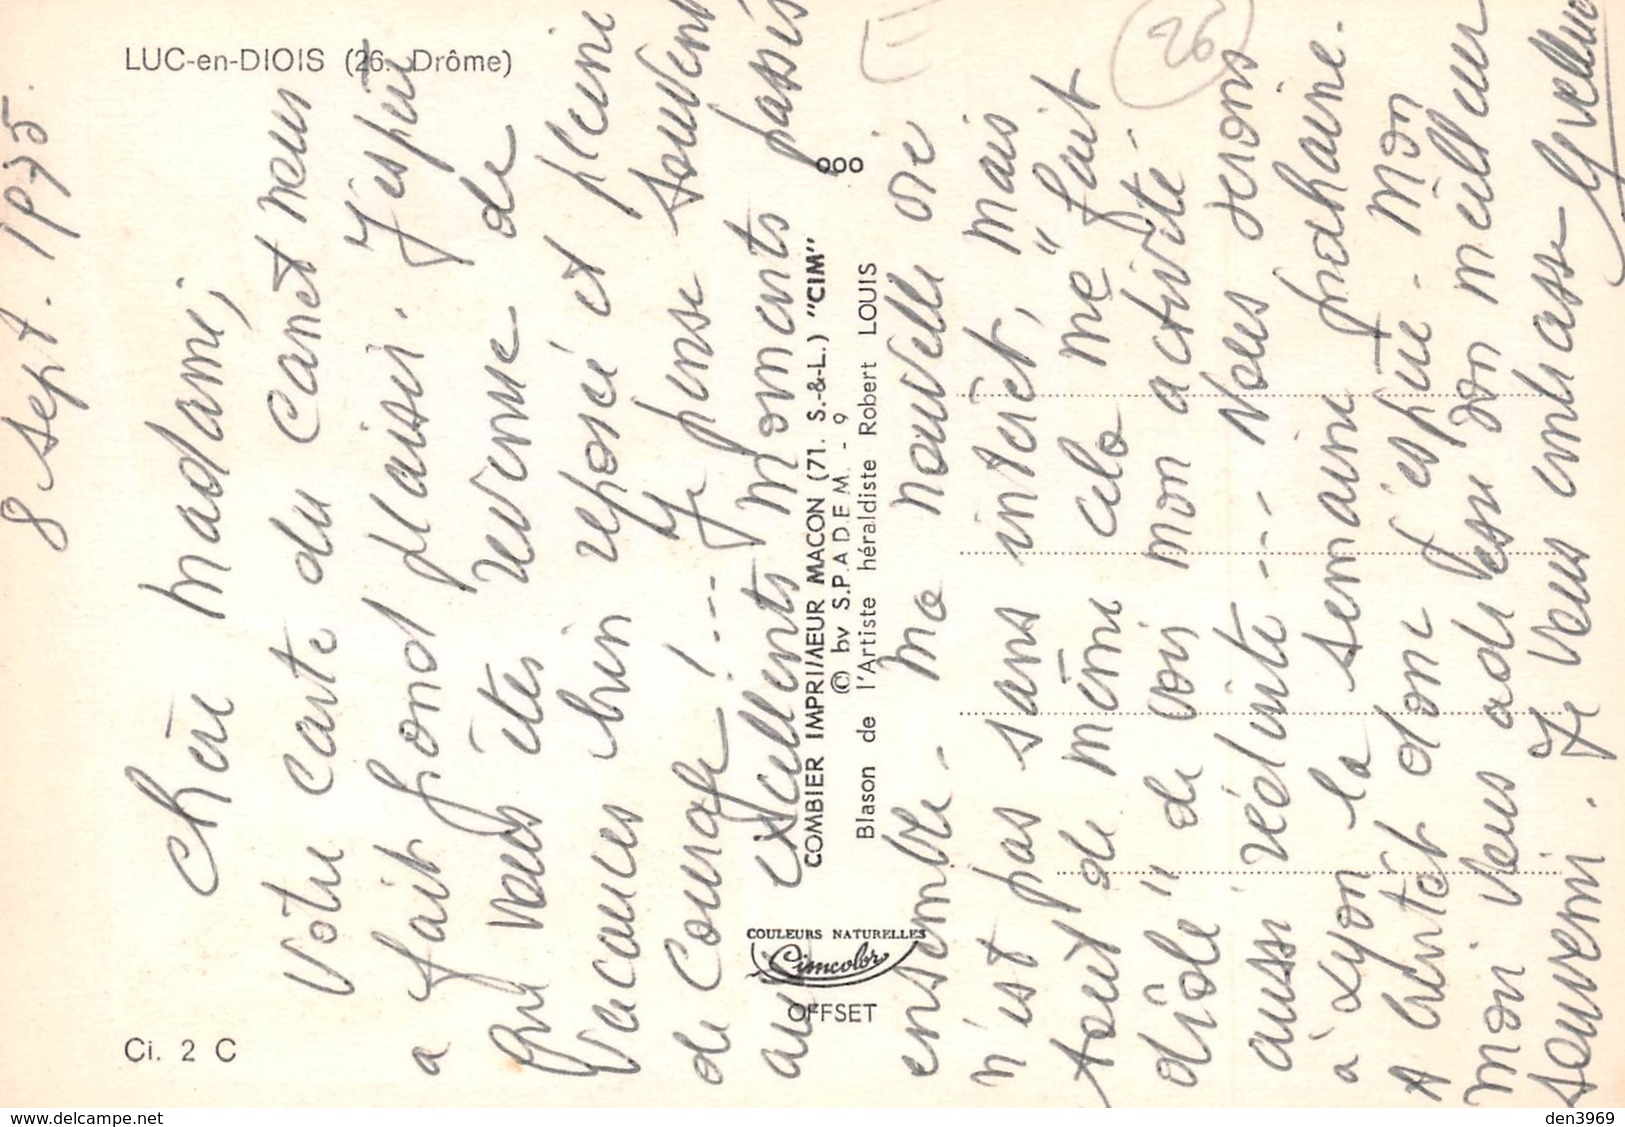 LUC-en-DIOIS (26. Drôme)
26
8 Sept. 1975.
Chère madame,
Votre carte du Canet nous
a fait grand plaisir. J'espère
que vous êtes revenue de
vacances bien reposée et pleine
de courage !... Je pense souvent
aux excellents moments passés
ensemble. Ma nouvelle vie
n'est pas sans intérêt, mais
tout de même cela me "fait
drôle" de voir mon activité
aussi réduite... Nous serons
à Lyon la semaine prochaine.
A bientôt donc j'espère. Mon
mari vous adresse son meilleur
souvenir. Je vous embrasse
COMBIER IMPRIMEUR MACON (71. S.-&-L.) "CIM"
© by S.P.A.D.E.M. - 9
Blason de l'Artiste héraldiste Robert LOUIS
COULEURS NATURELLES
Cimcolor
OFFSET
Ci. 2 C
www.delcampe.net
den3969